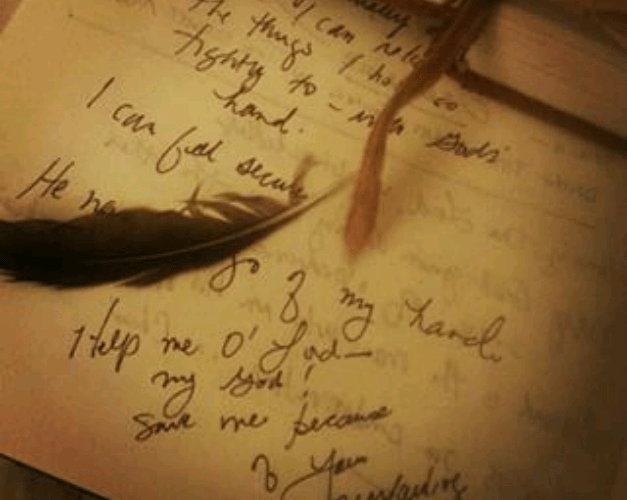 I can
the things I hold so
tightly to - into God's
hand.
I can feel secure
He
go of my hand.
Help me O' Lord -
my God!
Save me because
of Your